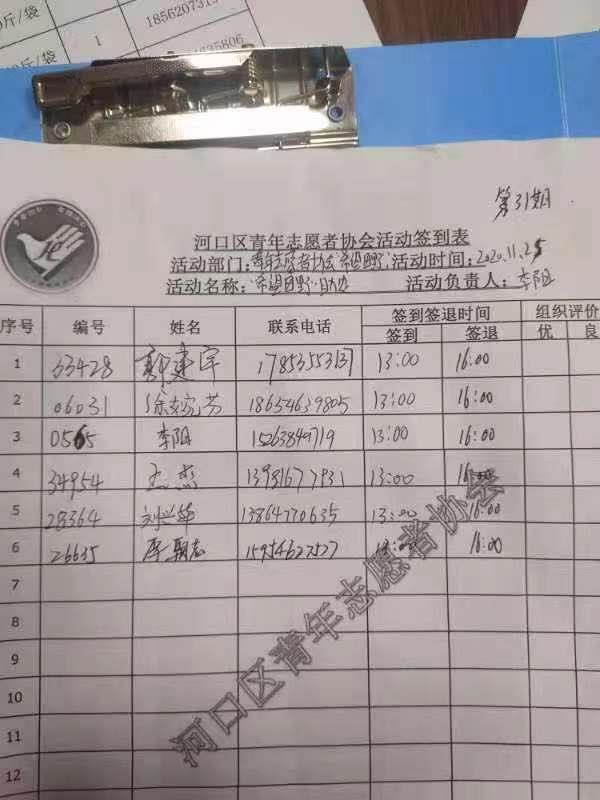 斤/袋
1
1856207315
斤/袋
635806
第31期
河口区青年志愿者协会活动签到表
活动部门：青年志愿者协会希望田野 活动时间：2020.11.25
活动名称：希望田野 活动负责人：李阳
序号 编号 姓名 联系电话 签到签退时间 组织评价
签到 签退 优 良
1 33428 郭建宇 17853553137 13:00 16:00
2 06031 徐 芳 18654639805 13:00 16:00
3 0565 李阳 15263849719 13:00 16:00
4 34954 杰 13981677931 13:00 16:00
5 28364 刘兴华 13864770635 13:00 16:00
6 26635 朝志 15954627527 13:00 16:00
7
8
9
10
11
12
河口区青年志愿者协会